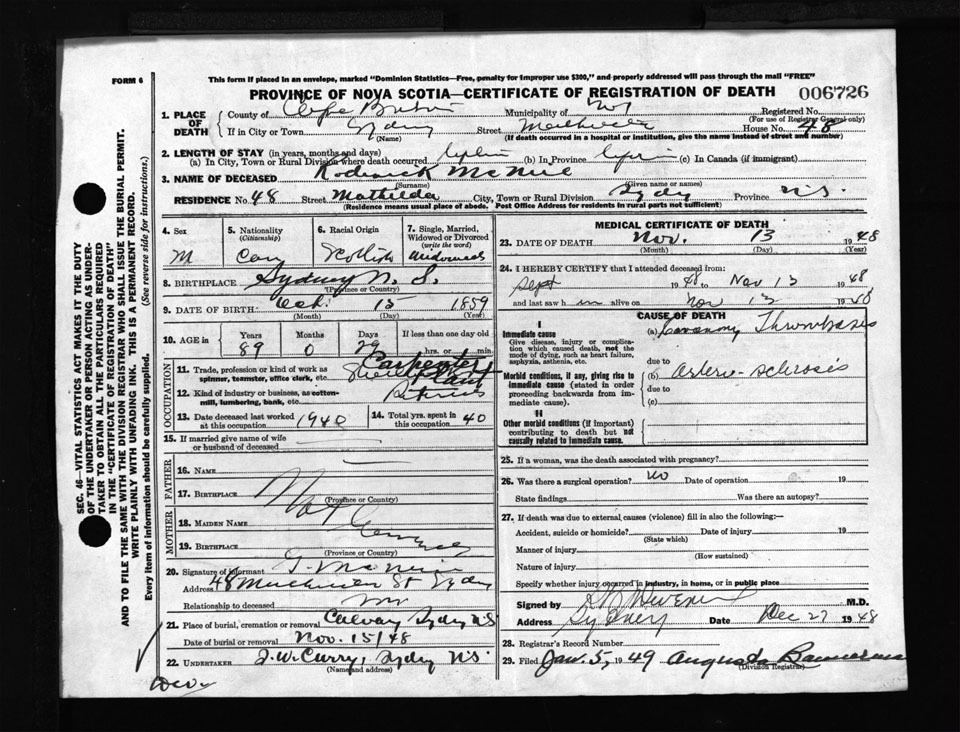 FORM 6
This form if placed in an envelope, marked "Dominion Statistics—Free, penalty for improper use $300," and properly addressed will pass through the mail "FREE"
PROVINCE OF NOVA SCOTIA—CERTIFICATE OF REGISTRATION OF DEATH 006726
SEC. 46—VITAL STATISTICS ACT MAKES IT THE DUTY
OF THE UNDERTAKER OR PERSON ACTING AS UNDER-
TAKER TO OBTAIN ALL THE PARTICULARS REQUIRED
IN THE "CERTIFICATE OF REGISTRATION OF DEATH"
AND TO FILE THE SAME WITH THE DIVISION REGISTRAR WHO SHALL ISSUE THE BURIAL PERMIT.
WRITE PLAINLY WITH UNFADING INK. THIS IS A PERMANENT RECORD.
Every item of information should be carefully supplied. (See reverse side for instructions.)
1. PLACE OF DEATH
County of Cape Breton Municipality of Registered No.
(For use of Registrar General only)
If in City or Town Sydney Street House No. 48
(Name) (If death occurred in a hospital or institution, give the name instead of street and number)
2. LENGTH OF STAY (in years, months and days)
(a) In City, Town or Rural Division where death occurred (b) In Province (c) In Canada (if immigrant)
3. NAME OF DECEASED Roderick McNeil
(Surname) (Given name or names)
RESIDENCE No. 48 Street Mathilda City, Town or Rural Division Sydney Province N.S.
(Residence means usual place of abode. Post Office Address for residents in rural parts not sufficient)
4. Sex M
5. Nationality (Citizenship) Can
6. Racial Origin Scottish
7. Single, Married, Widowed or Divorced (write the word) Widowed
8. BIRTHPLACE Sydney N. S.
(Province or Country)
9. DATE OF BIRTH: Oct. 15 1859
(Month) (Day) (Year)
10. AGE in Years Months Days If less than one day
89 0 29 hrs. or min.
OCCUPATION
11. Trade, profession or kind of work as spinner, teamster, office clerk, etc. Carpenter
12. Kind of industry or business, as cotton-mill, lumbering, bank, etc. Steel Plant
13. Date deceased last worked at this occupation 1940
14. Total yrs. spent in this occupation 40
15. If married give name of wife or husband of deceased
FATHER
16. NAME
17. BIRTHPLACE
(Province or Country)
MOTHER
18. MAIDEN NAME
19. BIRTHPLACE
(Province or Country)
20. Signature of informant
Address 48 St Sydney
Relationship to deceased
21. Place of burial, cremation or removal Calvary Sydney N.S.
Date of burial or removal Nov. 15/48
22. UNDERTAKER J. W. Curry, Sydney N.S.
(Name and address)
Dec.
MEDICAL CERTIFICATE OF DEATH
23. DATE OF DEATH Nov. 13 1948
(Month) (Day) (Year)
24. I HEREBY CERTIFY that I attended deceased from:
Sept 1948 to Nov 13 1948
and last saw h im alive on Nov 13 19
CAUSE OF DEATH
I
Immediate cause
Give disease, injury or complication which caused death, not the mode of dying, such as heart failure, asphyxia, asthenia, etc.
(a) Coronary Thrombosis
due to
Morbid conditions, if any, giving rise to immediate cause (stated in order proceeding backwards from immediate cause).
(b) Arterio-sclerosis
due to
(c)
II
Other morbid conditions (if important) contributing to death but not causally related to immediate cause.
25. If a woman, was the death associated with pregnancy?
26. Was there a surgical operation? No Date of operation 19
State findings Was there an autopsy?
27. If death was due to external causes (violence) fill in also the following:—
Accident, suicide or homicide? Date of injury 19
(State which)
Manner of injury
(How sustained)
Nature of injury
Specify whether injury occurred in industry, in home, or in public place
Signed by M.D.
Address Sydney Date Dec 27 1948
28. Registrar's Record Number
29. Filed Jan. 5, 1949 Augusta
(Division Registrar)